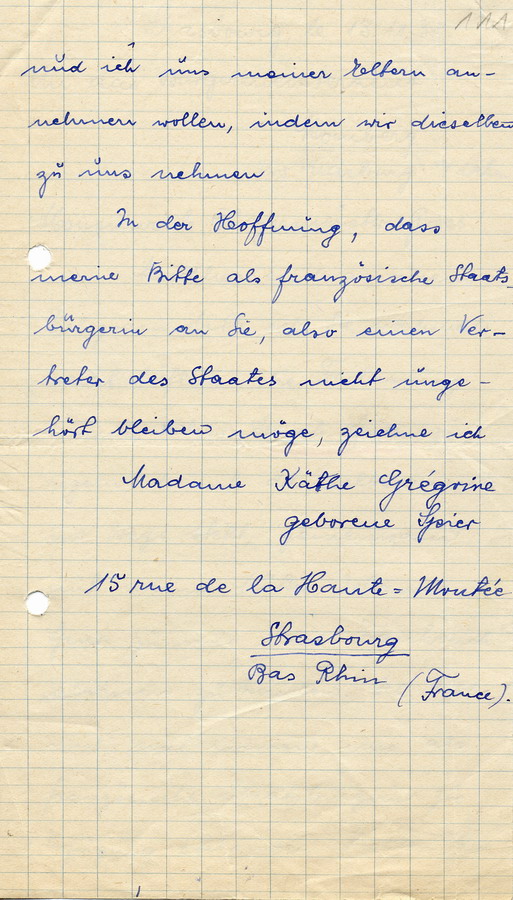 111
und ich uns meiner Eltern an-
nehmen wollen, indem wir dieselben
zu uns nehmen
In der Hoffnung, dass
meine Bitte als französische Staats-
bürgerin an Sie, also einen Ver-
treter des Staates nicht unge-
hört bleiben möge, zeichne ich
Madame Käthe Grégoire
geborene Spier
15 rue de la Haute = Montée
Strasbourg
Bas Rhin (France).